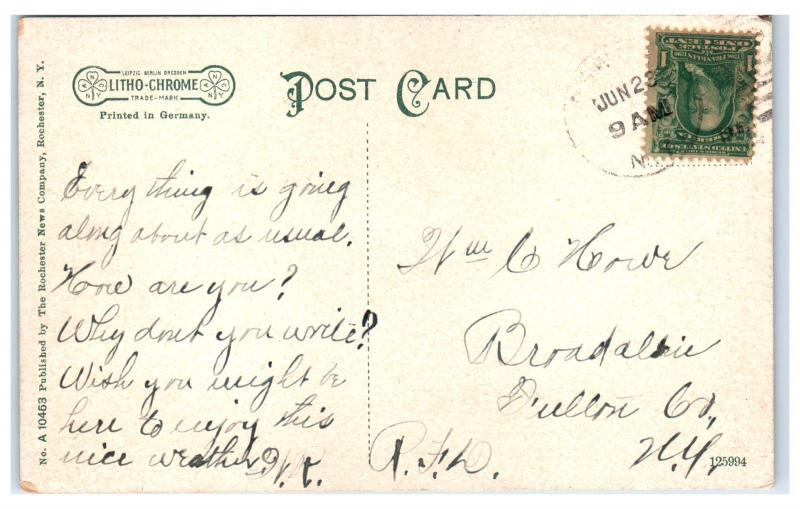 No. A 10453 Published by The Rochester News Company, Rochester, N. Y.
LEIPZIG BERLIN DRESDEN
LITHO-CHROME
TRADE-MARK
Printed in Germany.
POST CARD
JUN 23
9 AM
N.
Every thing is going
along about as usual.
How are you?
Why dont you write?
Wish you might be
here to enjoy this
nice weather.
Wm C Howe
Broadalbin
Fulton Co.,
N.Y.
R.F.D.
125994